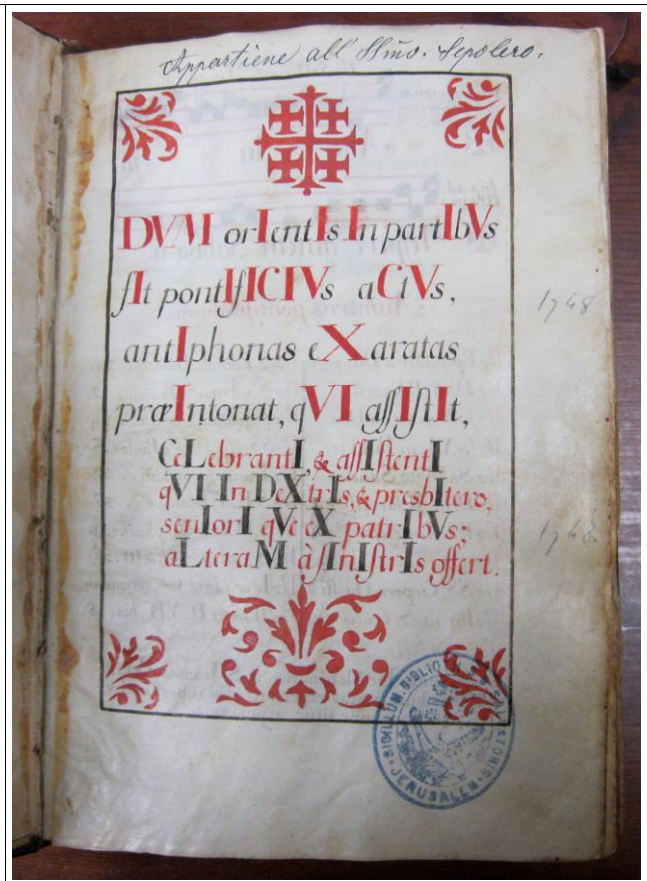 Appartiene all' SSmo. Sepolcro.
DVM orIentIs In partIbVs
fIt pontIfICIVs aCtVs,
antIphonas eXaratas
præIntonat, qVI assIstIt,
CeLebrantI, & assIstentI
qVI In DeXtrIs, & presbItero,
senIorI qVe eX patrIbVs;
aLteraM à sInIstrIs offert.
1748
1748
SIGILLUM BIBLIOT
JERUSALEM